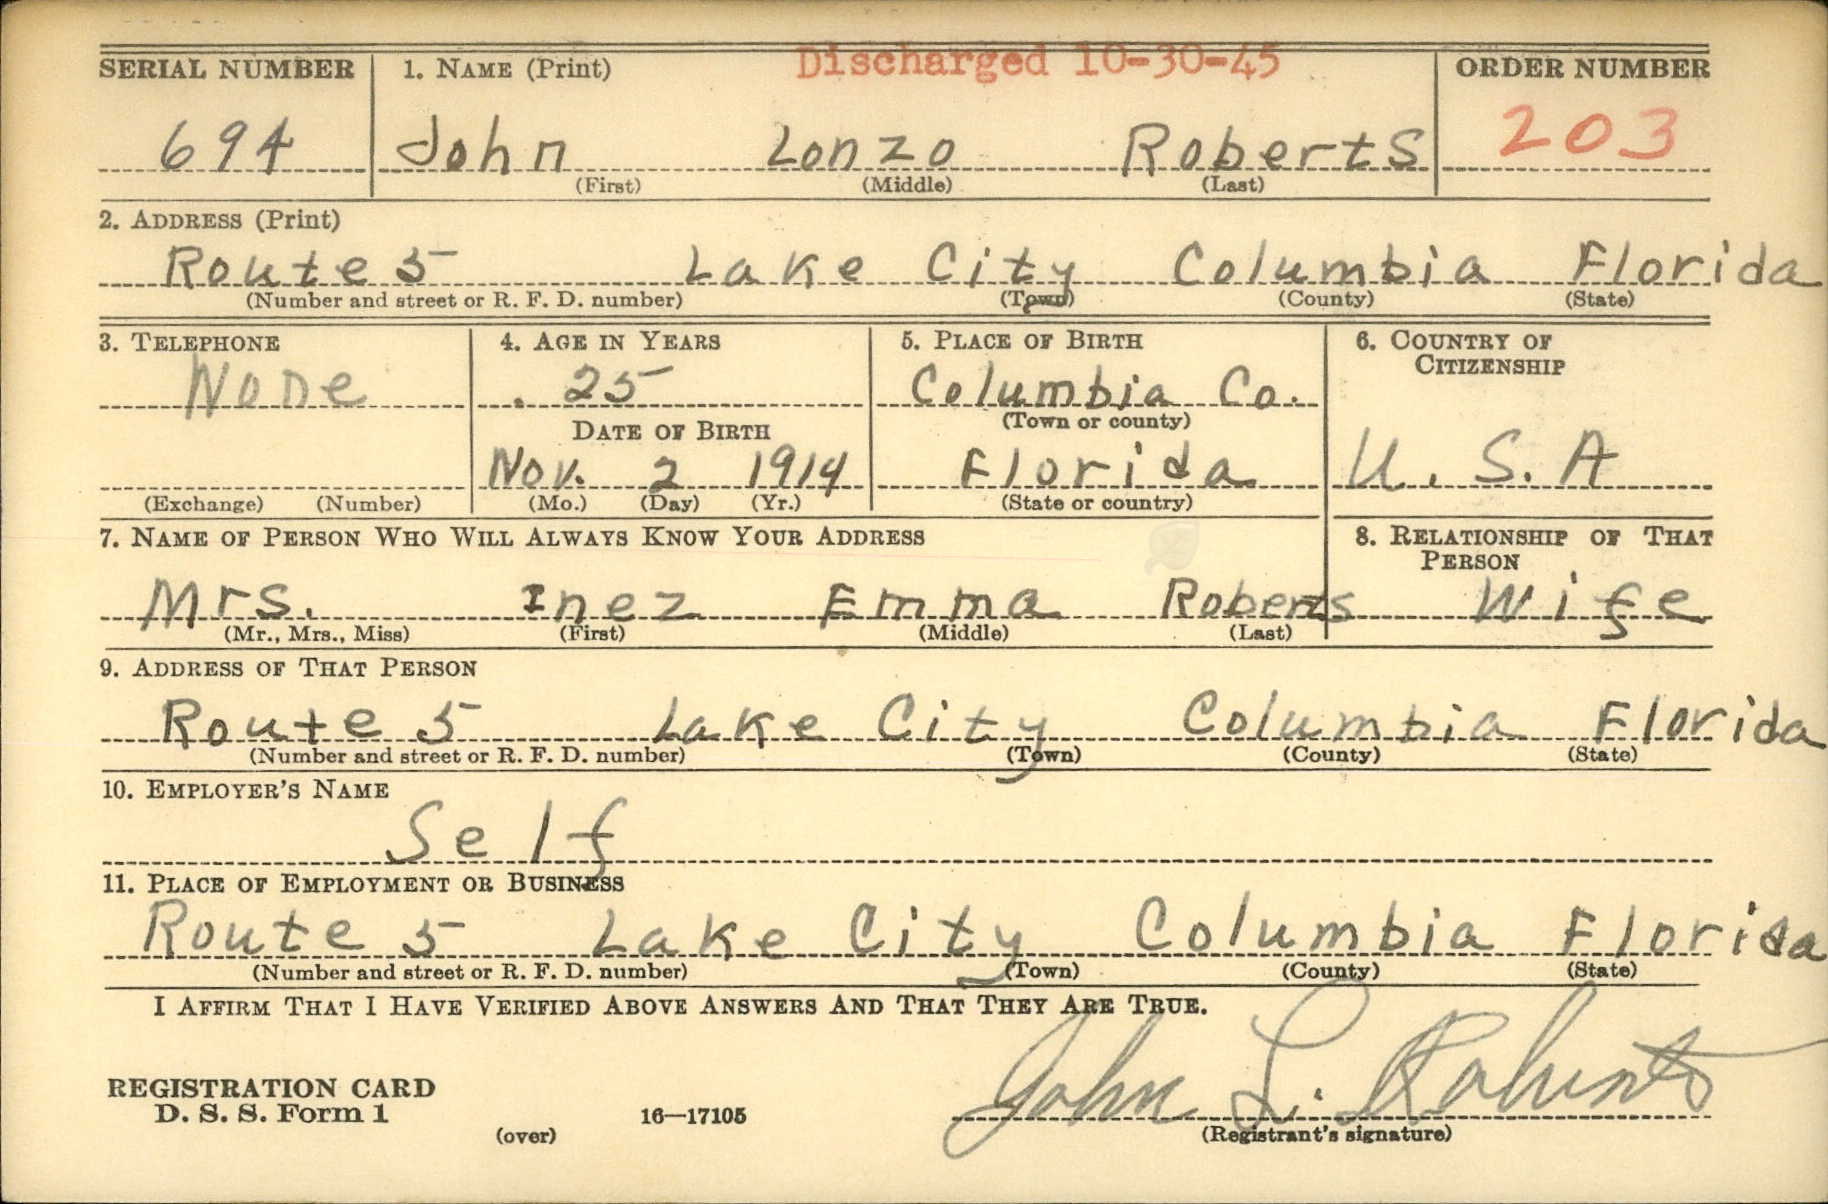 Discharged 10-30-45
SERIAL NUMBER 1. NAME (Print) ORDER NUMBER
694 John Lonzo Roberts 203
(First) (Middle) (Last)
2. ADDRESS (Print)
Route 5 Lake City Columbia Florida
(Number and street or R. F. D. number) (Town) (County) (State)
3. TELEPHONE 4. AGE IN YEARS 5. PLACE OF BIRTH 6. COUNTRY OF
CITIZENSHIP
None 25 Columbia Co.
(Town or county)
DATE OF BIRTH
Nov. 2 1914 Florida U. S. A
(Exchange) (Number) (Mo.) (Day) (Yr.) (State or country)
7. NAME OF PERSON WHO WILL ALWAYS KNOW YOUR ADDRESS 8. RELATIONSHIP OF THAT
PERSON
Mrs. Inez Emma Roberts Wife
(Mr., Mrs., Miss) (First) (Middle) (Last)
9. ADDRESS OF THAT PERSON
Route 5 Lake City Columbia Florida
(Number and street or R. F. D. number) (Town) (County) (State)
10. EMPLOYER'S NAME
Self
11. PLACE OF EMPLOYMENT OR BUSINESS
Route 5 Lake City Columbia Florida
(Number and street or R. F. D. number) (Town) (County) (State)
I AFFIRM THAT I HAVE VERIFIED ABOVE ANSWERS AND THAT THEY ARE TRUE.
John L. Roberts
REGISTRATION CARD
D. S. S. Form 1 16—17105
(over) (Registrant's signature)